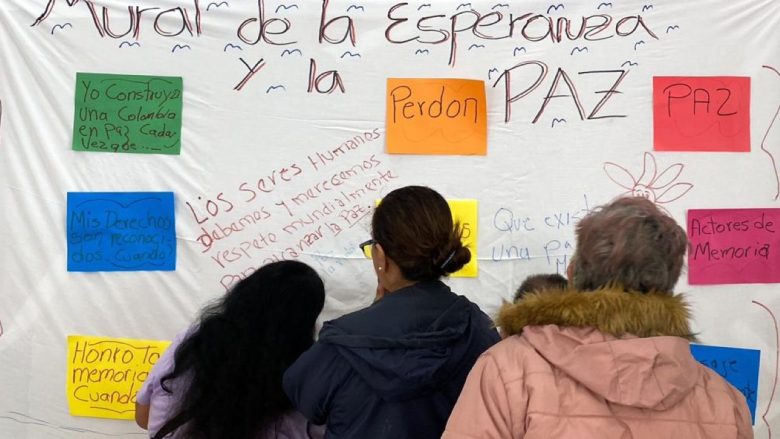 Mural de la Esperanza
y la PAZ
Yo Construyo
una Colombia
en Paz Cada
Vez que....
Perdon
PAZ
Los Seres Humanos
debemos y merecemos
respeto mundialmente
para alcanzar la Paz
Mis Derechos
son reconoci
dos. Cuando
Que exist
una Pa
Actores de
Memoria
Honro Ta
memoria
Cuando